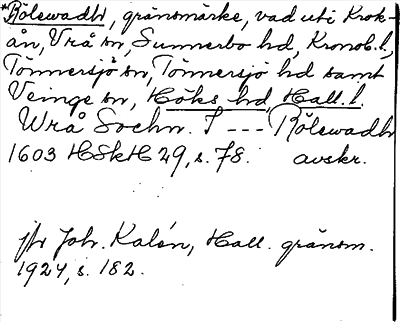 *Rölewadh, gränsmärke, vad uti Krok-
ån, Vrå sn, Sunnerbo hd, Kronob. l.,
Tönnersjö sn, Tönnersjö hd samt
Veinge sn, Höks hd, Hall. l.
Wrå Sochn. J --- Rölewadh
1603 HSkH 29, s. 78. avskr.
jfr Joh. Kalén, Hall. gränsm.
1924, s. 182.